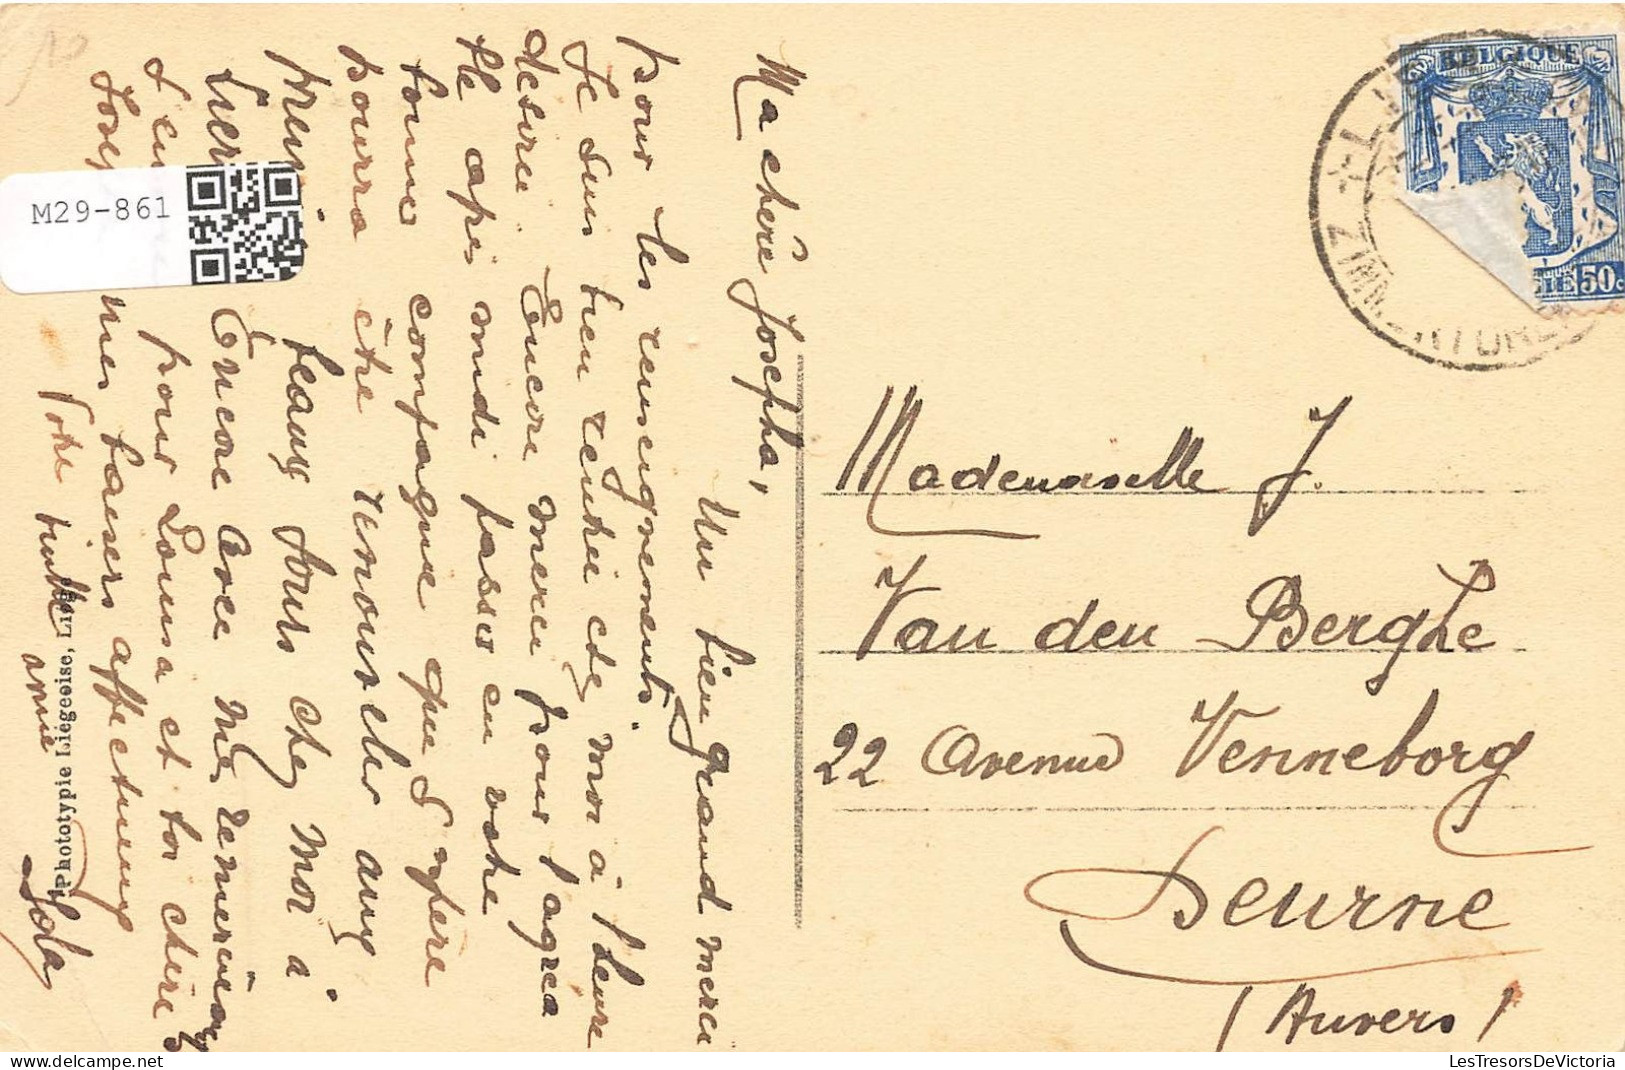 Ma chère Josepha,
Un bien grand merci
pour les renseignements.
Je suis bien rentrée chez moi à l'heure
désirée. Encore merci pour l'agréa
ble après midi passée en votre
bonne compagnie que j'espère
pourra être renouveler aux
premiers beaux jours chez moi à
Encore avec mes remerciements
pour Louisa et toi chère
mes baisers affectueux
Votre petite amie
Lola
Phototypie Liégeoise, Liége
M29-861
BELGIQUE
50c
Mademoiselle J.
Van den Berghe
22 Avenue Venneborg
Deurne
(Anvers)
LesTresorsDeVictoria